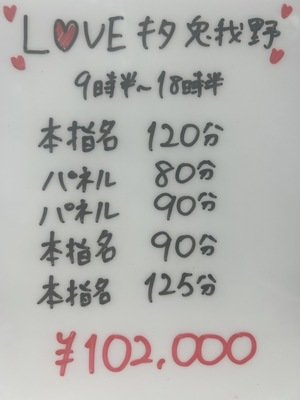 LOVE キタ兎我野
9時半~18時半
本指名 120分
パネル 80分
パネル 90分
本指名 90分
本指名 125分
¥102,000